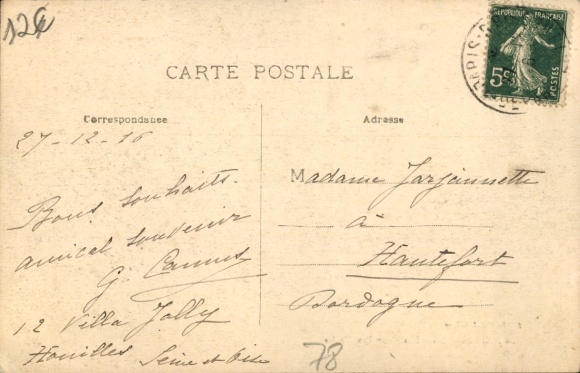 12€
RÉPUBLIQUE FRANÇAISE
5c
POSTES
PARIS
CARTE POSTALE
Correspondance
27-12-16
Bons souhaits.
amical souvenir
G. Camus
12 Villa Jolly
Houilles Seine et Oise
Adresse
Madame Jarjeannette
à
Hautefort
Dordogne
78